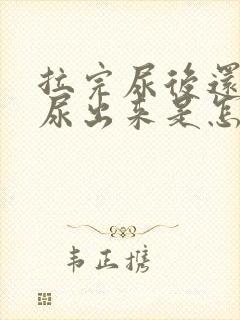 拉完尿後還
尿出来是怎
韦正携